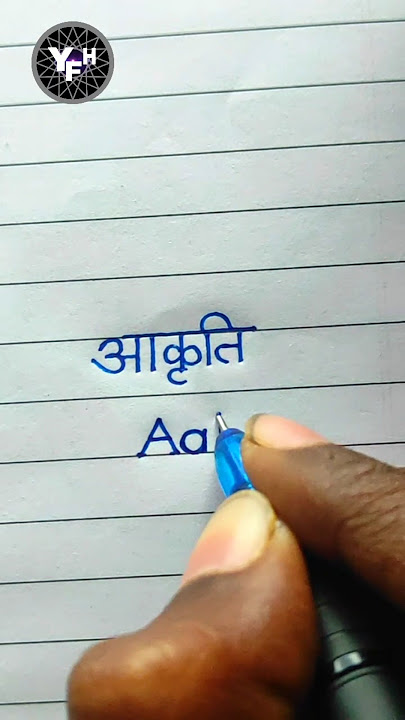 YFH
आकृति
Aa